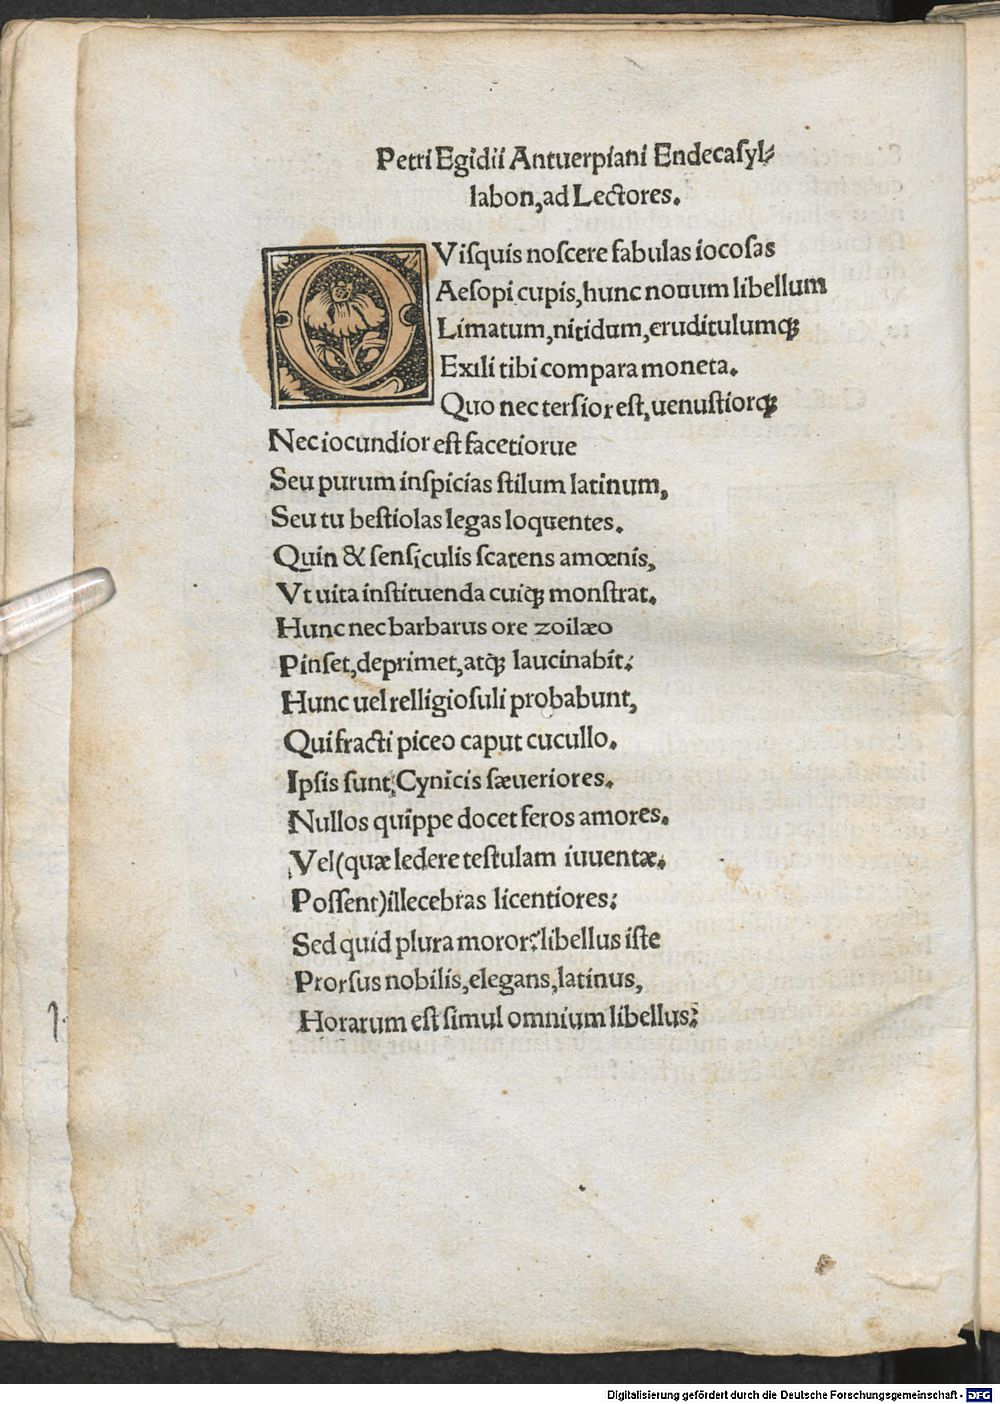 Petri Egidii Antuerpiani Endecaſyl⸗
labon, ad Lectores.
QViſquis noſcere fabulas iocoſas
Aeſopi cupis, hunc nouum libellum
Limatum, nitidum, eruditulumqꝫ
Exili tibi compara moneta.
Quo nec terſior eſt, uenuſtiorqꝫ
Nec iocundior eſt facetiorue
Seu purum inſpicias ſtilum latinum,
Seu tu beſtiolas legas loquentes.
Quin & ſenſiculis ſcatens amœnis,
Vt uita inſtituenda cuiqꝫ monſtrat.
Hunc nec barbarus ore zoilæo
Pinſet, deprimet, atqꝫ laucinabit:
Hunc uel relligioſuli probabunt,
Qui fracti piceo caput cucullo.
Ipſis ſunt Cynicis ſæueriores.
Nullos quippe docet feros amores.
Vel (quæ ledere teſtulam iuuentæ.
Poſſent) illecebras licentiores:
Sed quid plura moror? libellus iſte
Prorſus nobilis, elegans, latinus,
Horarum eſt ſimul omnium libellus:
Digitalisierung gefördert durch die Deutsche Forschungsgemeinschaft - DFG